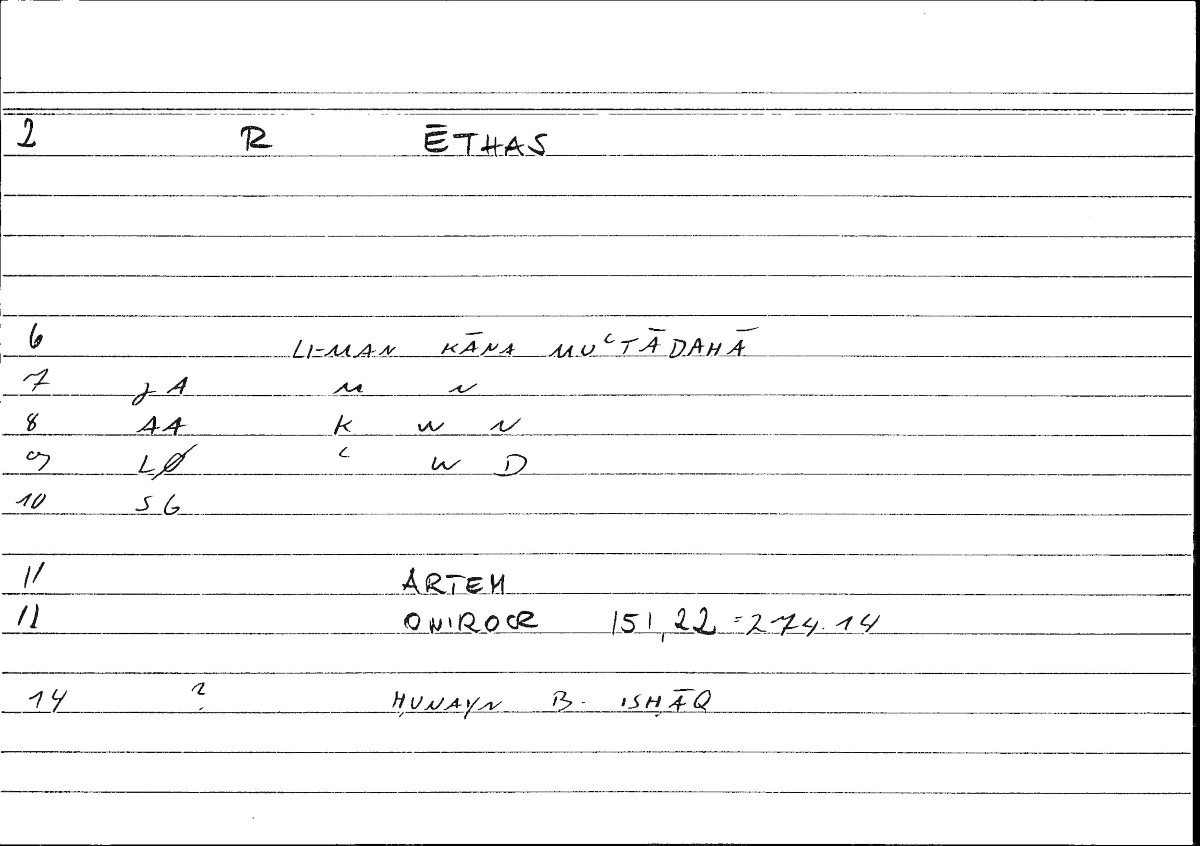 2 R ĒTHAS
6 LI-MAN KĀNA MUʿTĀDAHĀ
7 JA M N
8 AA K W N
9 LØ ʿ W D
10 SG
11 ARTEM
12 ONIROCR 151,22=274.14
14 ? ḤUNAYN B. ISḤĀQ